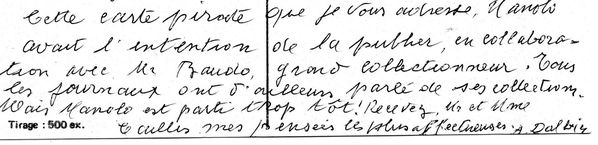 Cette carte pirate que je vous adresse, Manolo
avait l'intention de la publier, en collabora-
tion avec Mr Baudo, grand collectionneur. Tous
les journaux ont d'ailleurs parlé de ses collections.
Mais Manolo est parti trop tôt! Recevez, Mr et Mme
Tirage : 500 ex.
mes pensées les plus affectueuses. A